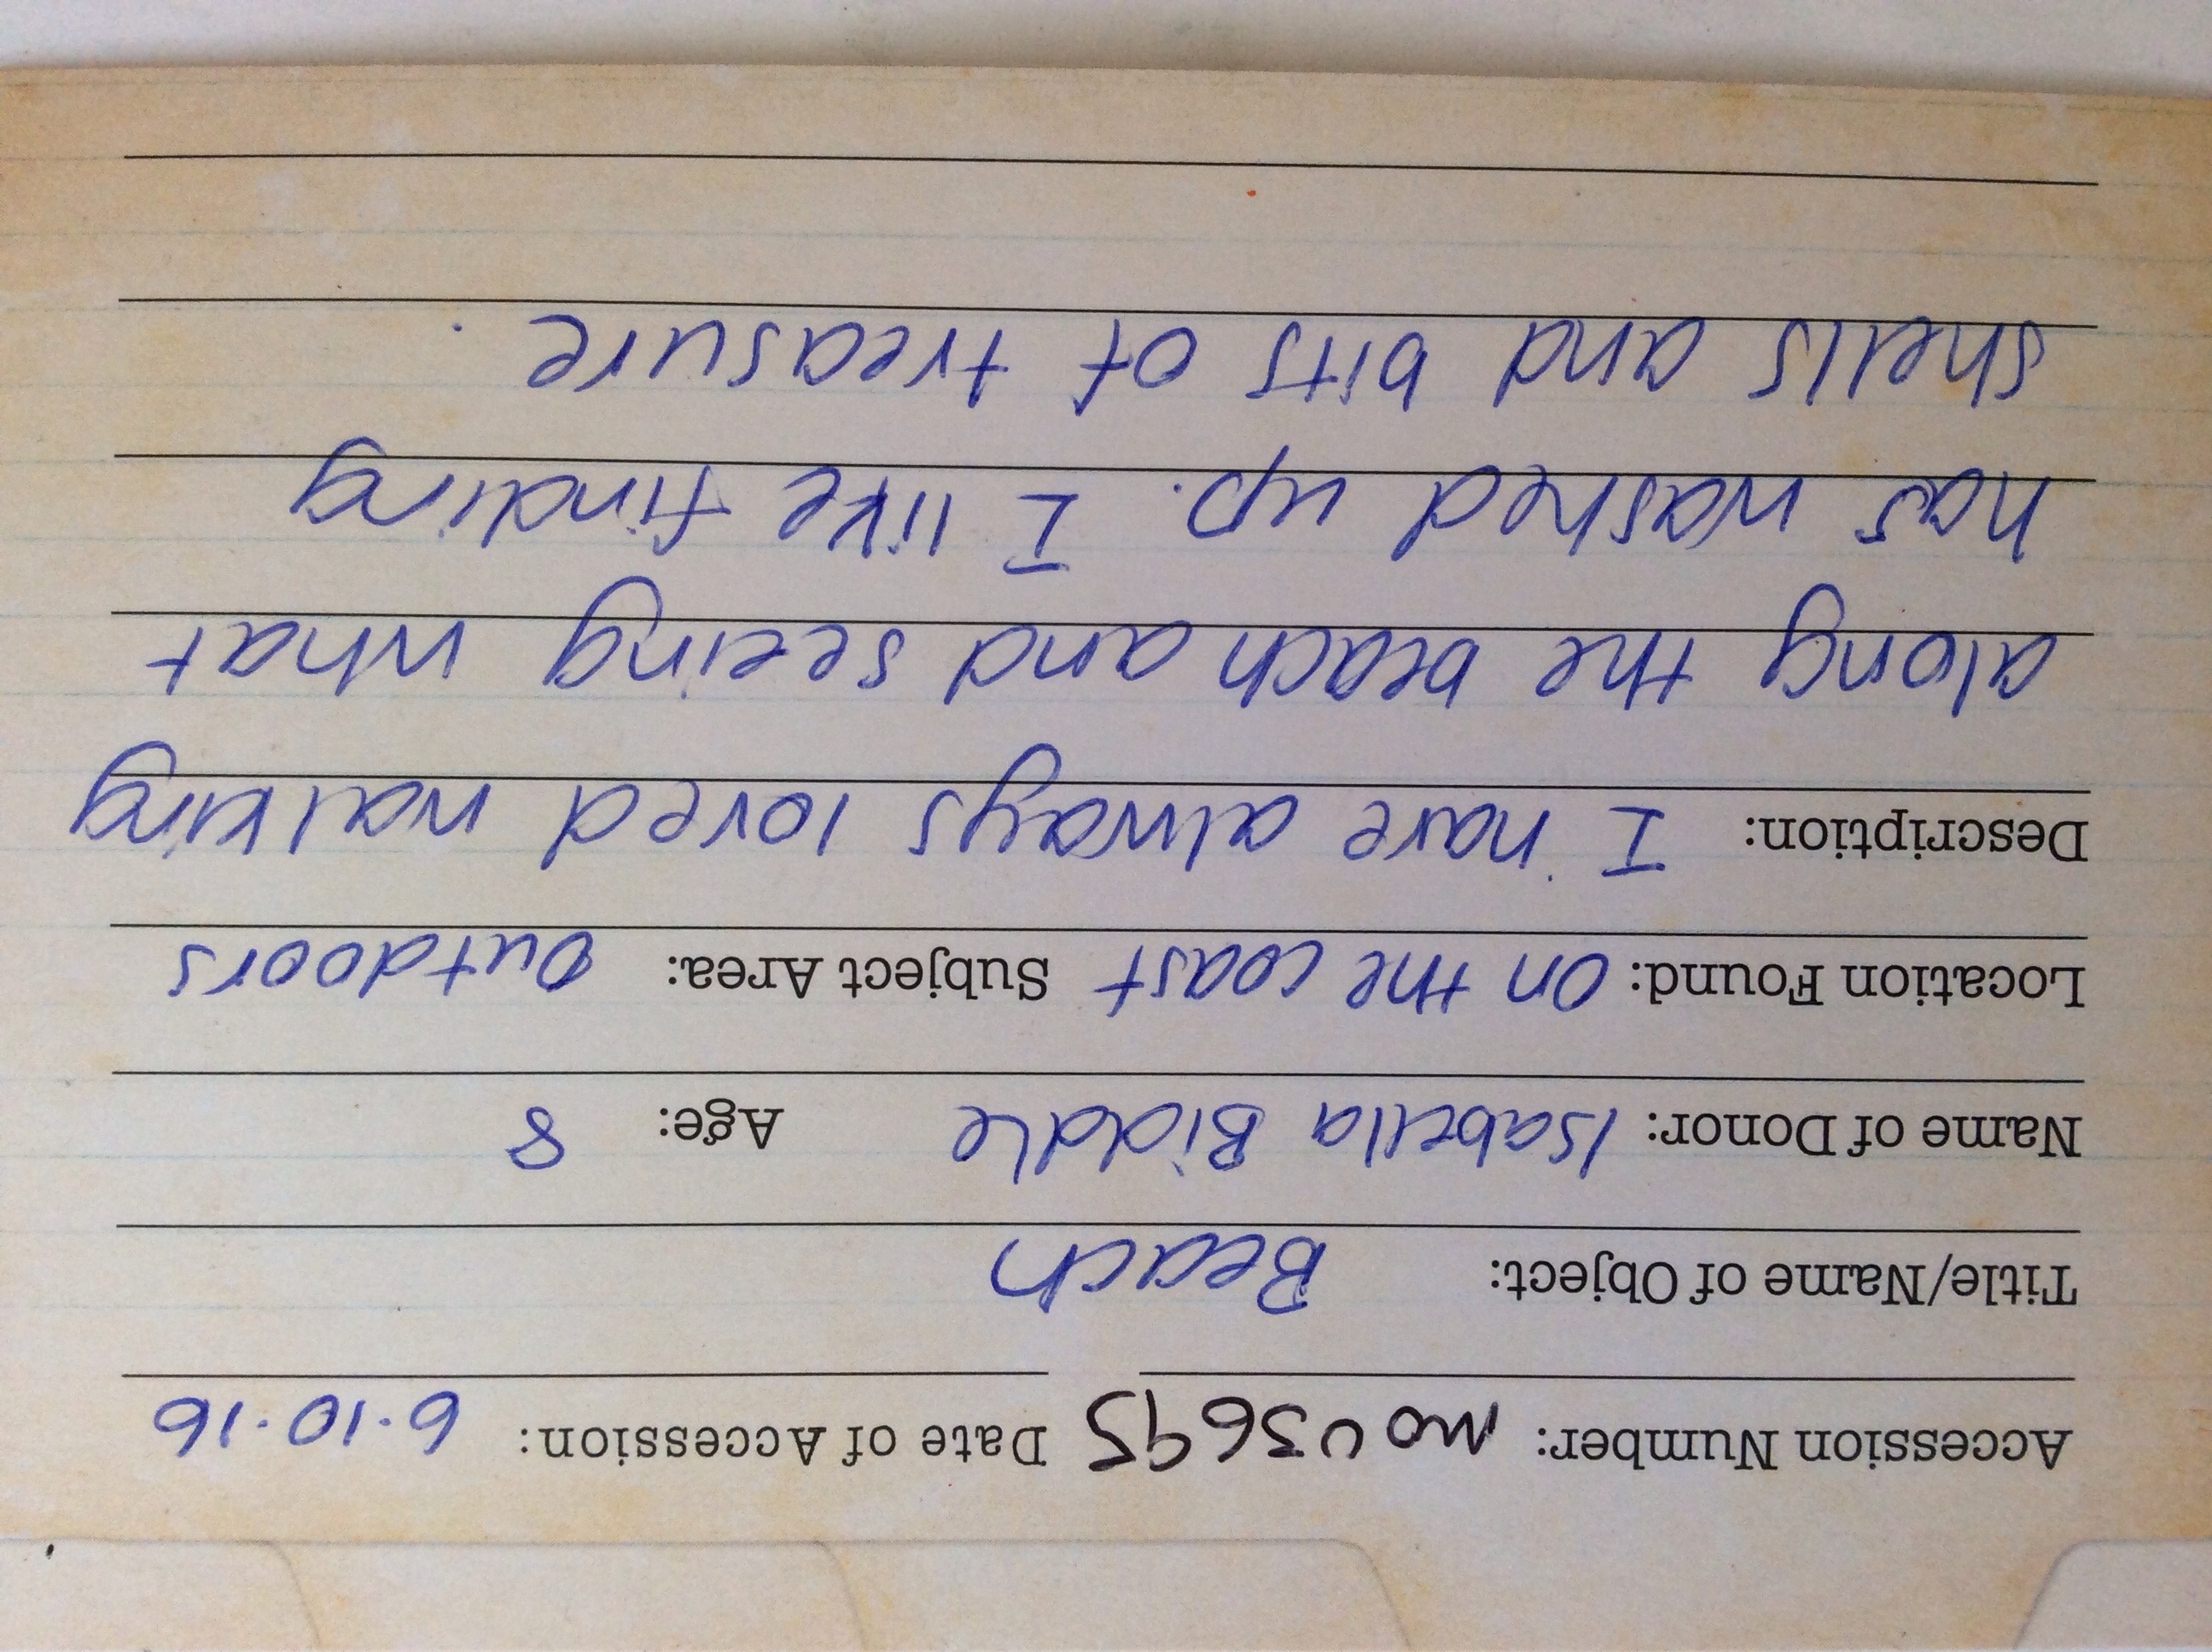 Accession Number: MOU3695 Date of Accession: 6.10.16
Title/Name of Object: Beach
Name of Donor: Isabella Biddle Age: 8
Location Found: On the coast Subject Area: Outdoors
Description: I have always loved walking
along the beach and seeing what
has washed up. I like finding
shells and bits of treasure.